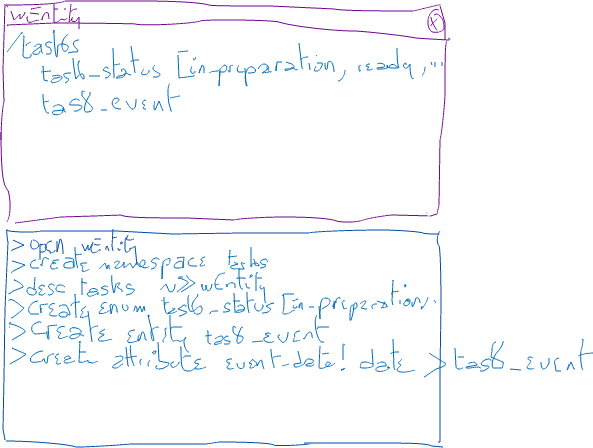 wEntity
(x)
/tasks
task_status [in_preparation, ready, ...
task_event
> open wEntity
> create namespace tasks
> desc tasks >> wEntity
> create enum task_status [in_preparation, .
> Create entity task_event
> Create attribute event_date! date > task_event